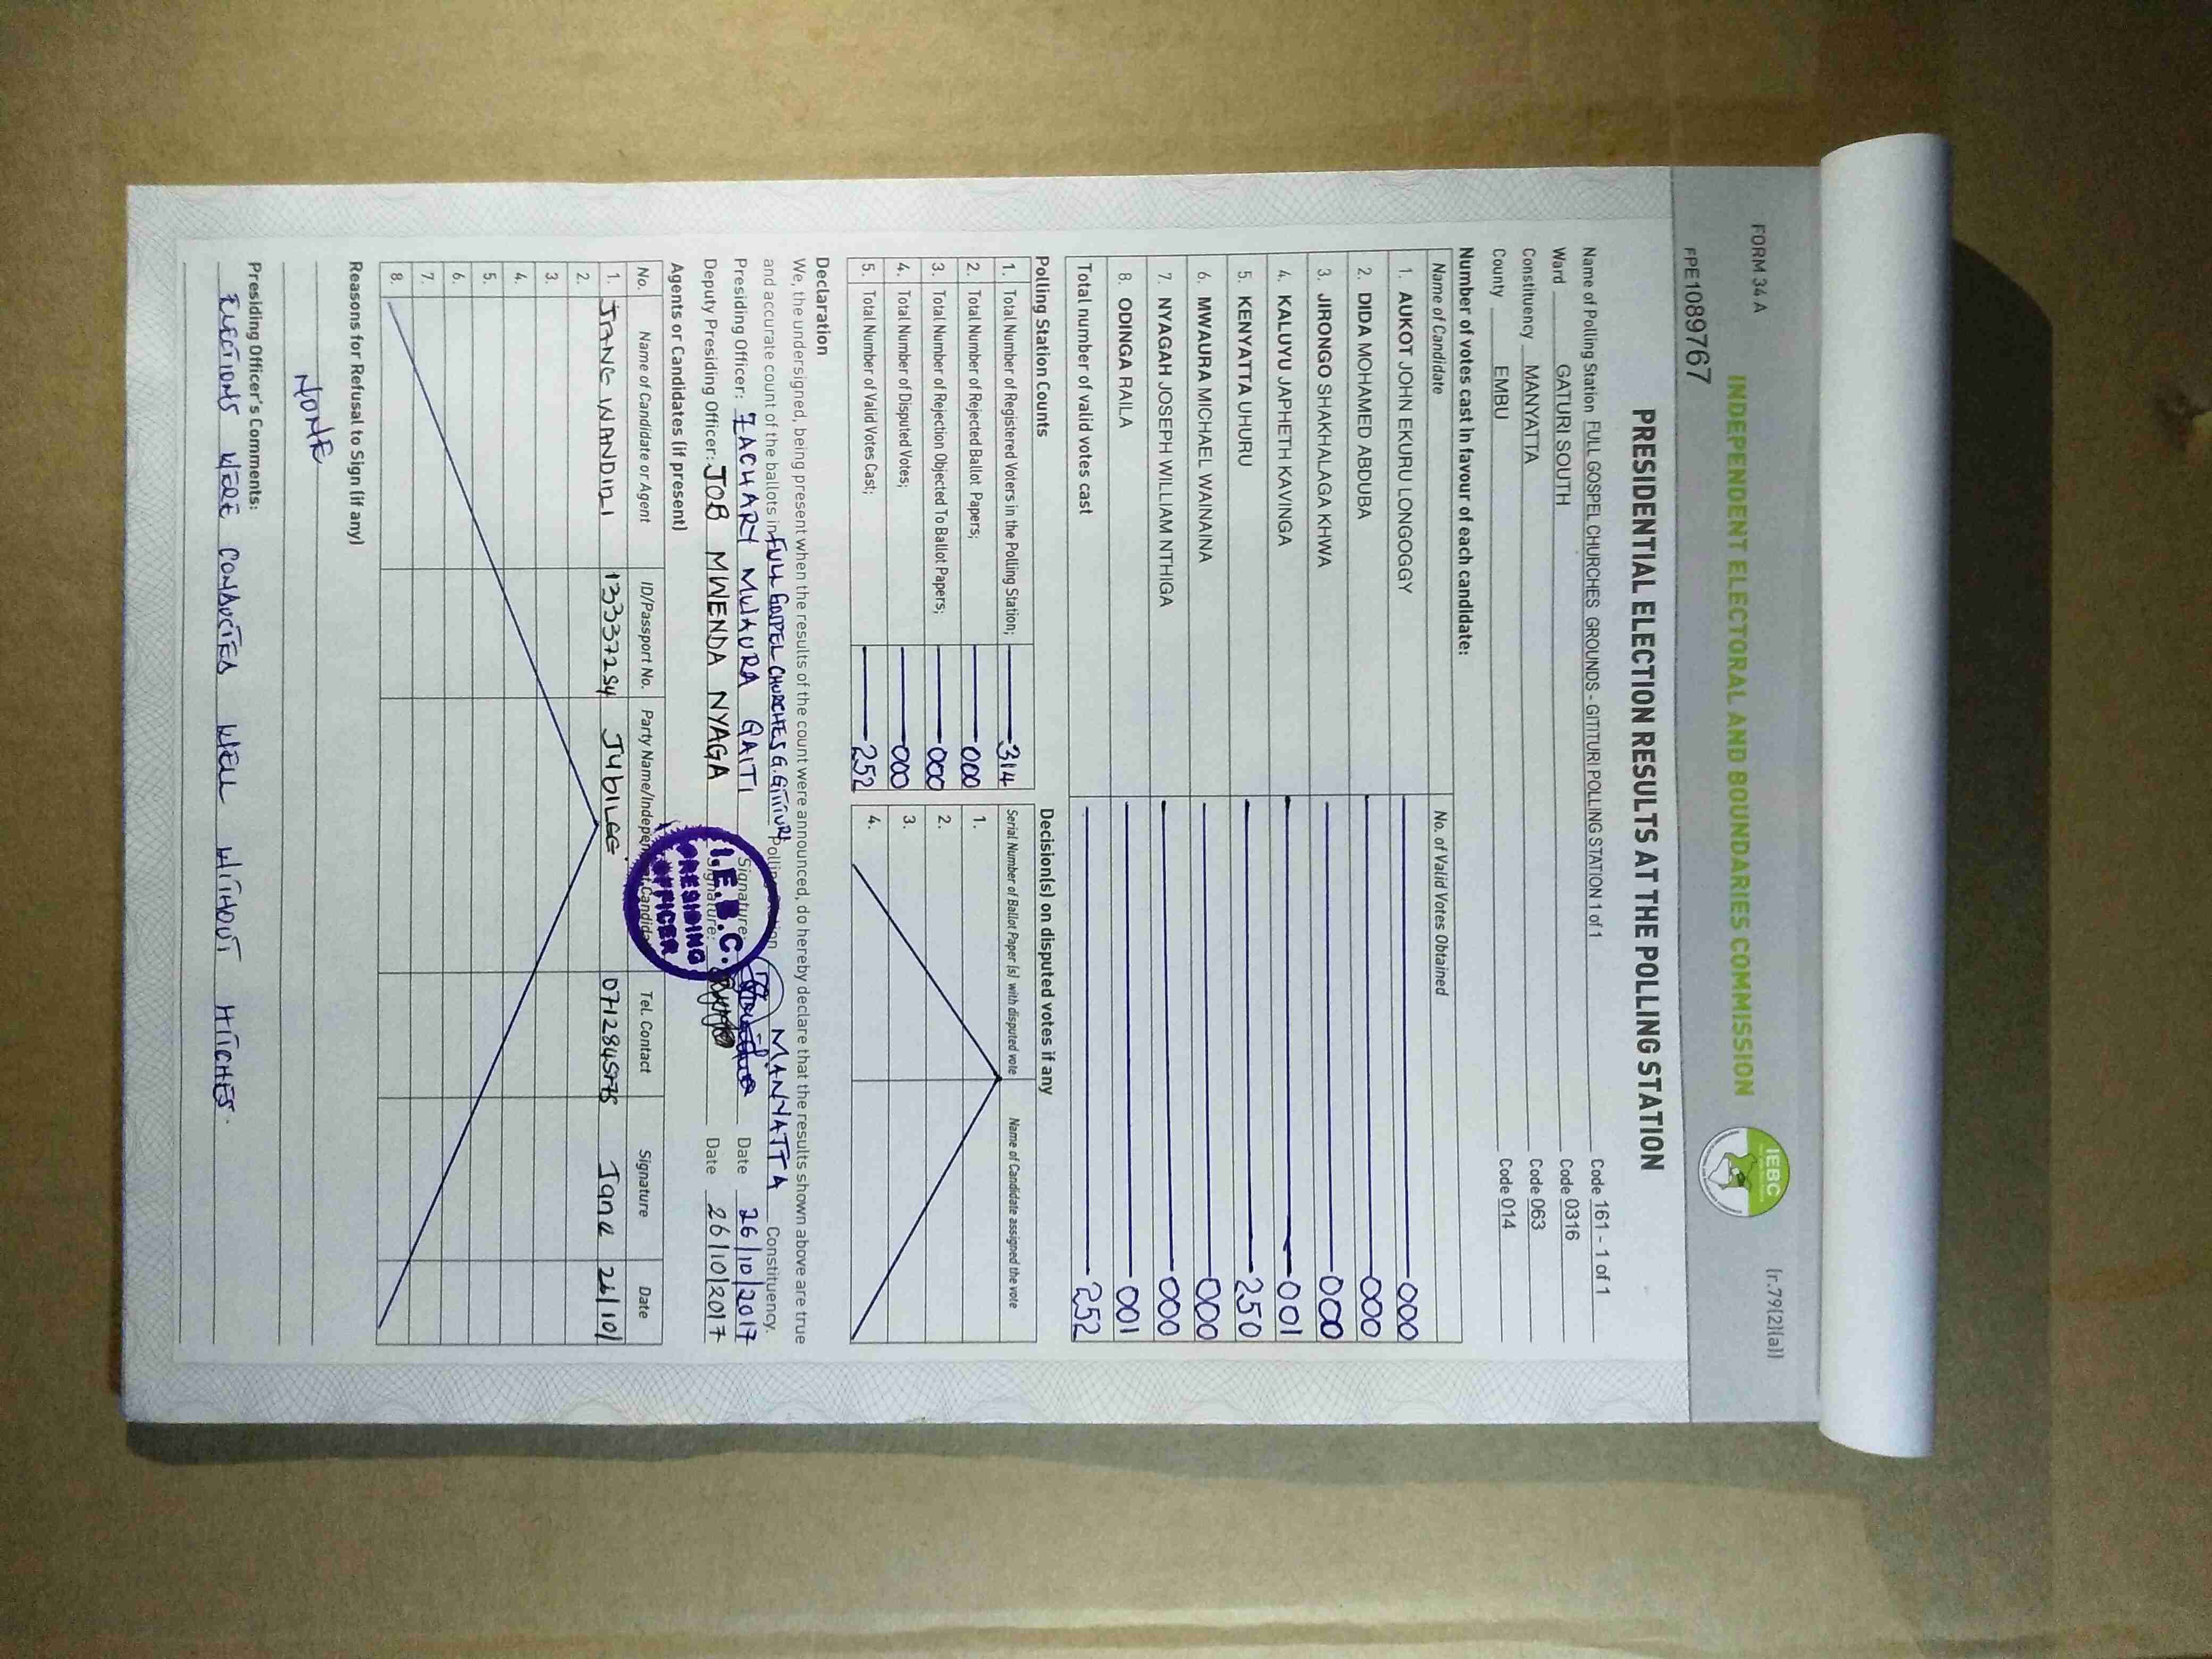 FORM 34 A
(r.79(2)(a))
INDEPENDENT ELECTORAL AND BOUNDARIES COMMISSION
IEBC
FPE1089767
PRESIDENTIAL ELECTION RESULTS AT THE POLLING STATION
Name of Polling Station FULL GOSPEL CHURCHES GROUNDS - GITITURI POLLING STATION 1 of 1 Code 161 - 1 of 1
Ward GATURI SOUTH Code 0316
Constituency MANYATTA Code 063
County EMBU Code 014
Number of votes cast in favour of each candidate:
Name of Candidate No. of Valid Votes Obtained
1. AUKOT JOHN EKURU LONGOGGY 000
2. DIDA MOHAMED ABDUBA 000
3. JIRONGO SHAKHALAGA KHWA 000
4. KALUYU JAPHETH KAVINGA 001
5. KENYATTA UHURU 250
6. MWAURA MICHAEL WAINAINA 000
7. NYAGAH JOSEPH WILLIAM NTHIGA 000
8. ODINGA RAILA 001
Total number of valid votes cast 252
Polling Station Counts
1. Total Number of Registered Voters in the Polling Station; 314
2. Total Number of Rejected Ballot Papers; 000
3. Total Number of Rejection Objected To Ballot Papers; 000
4. Total Number of Disputed Votes; 000
5. Total Number of Valid Votes Cast; 252
Decision(s) on disputed votes if any
Serial Number of Ballot Paper (s) with disputed vote Name of Candidate assigned the vote
1.
2.
3.
4.
Declaration
We, the undersigned, being present when the results of the count were announced, do hereby declare that the results shown above are true
and accurate count of the ballots in FULL GOSPEL CHURCHES G. GITITURI Polling Station MANYATTA Constituency.
Presiding Officer: ZACHARY MWAURA GAITI Signature: Date 26/10/2017
Deputy Presiding Officer: JOB MWENDA NYAGA Signature: Date 26/10/2017
I.E.B.C.
PRESIDING
OFFICER
Agents or Candidates (if present)
No. Name of Candidate or Agent ID/Passport No. Party Name/Independent Candidate Tel. Contact Signature Date
1. JANE WANDIRI 13337254 JUBILEE Jane 26/10/
2.
3.
4.
5.
6.
7.
8.
Reasons for Refusal to Sign (if any)
NONE
Presiding Officer's Comments:
ELECTIONS WERE CONDUCTED WELL WITHOUT HITCHES.